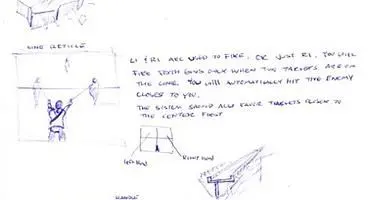 LINE RETICLE
L1 & R1 ARE USED TO FIRE, OR JUST R1. YOU WILL
FIRE BOTH GUNS ONLY WHEN TWO TARGETS ARE IN
THE CONE. YOU WILL AUTOMATICALLY HIT THE ENEMY
CLOSER TO YOU.
THE SYSTEM SHOULD ALSO FAVOR TARGETS CLOSER TO
THE CENTER FIRST
LEFT
RIGHT